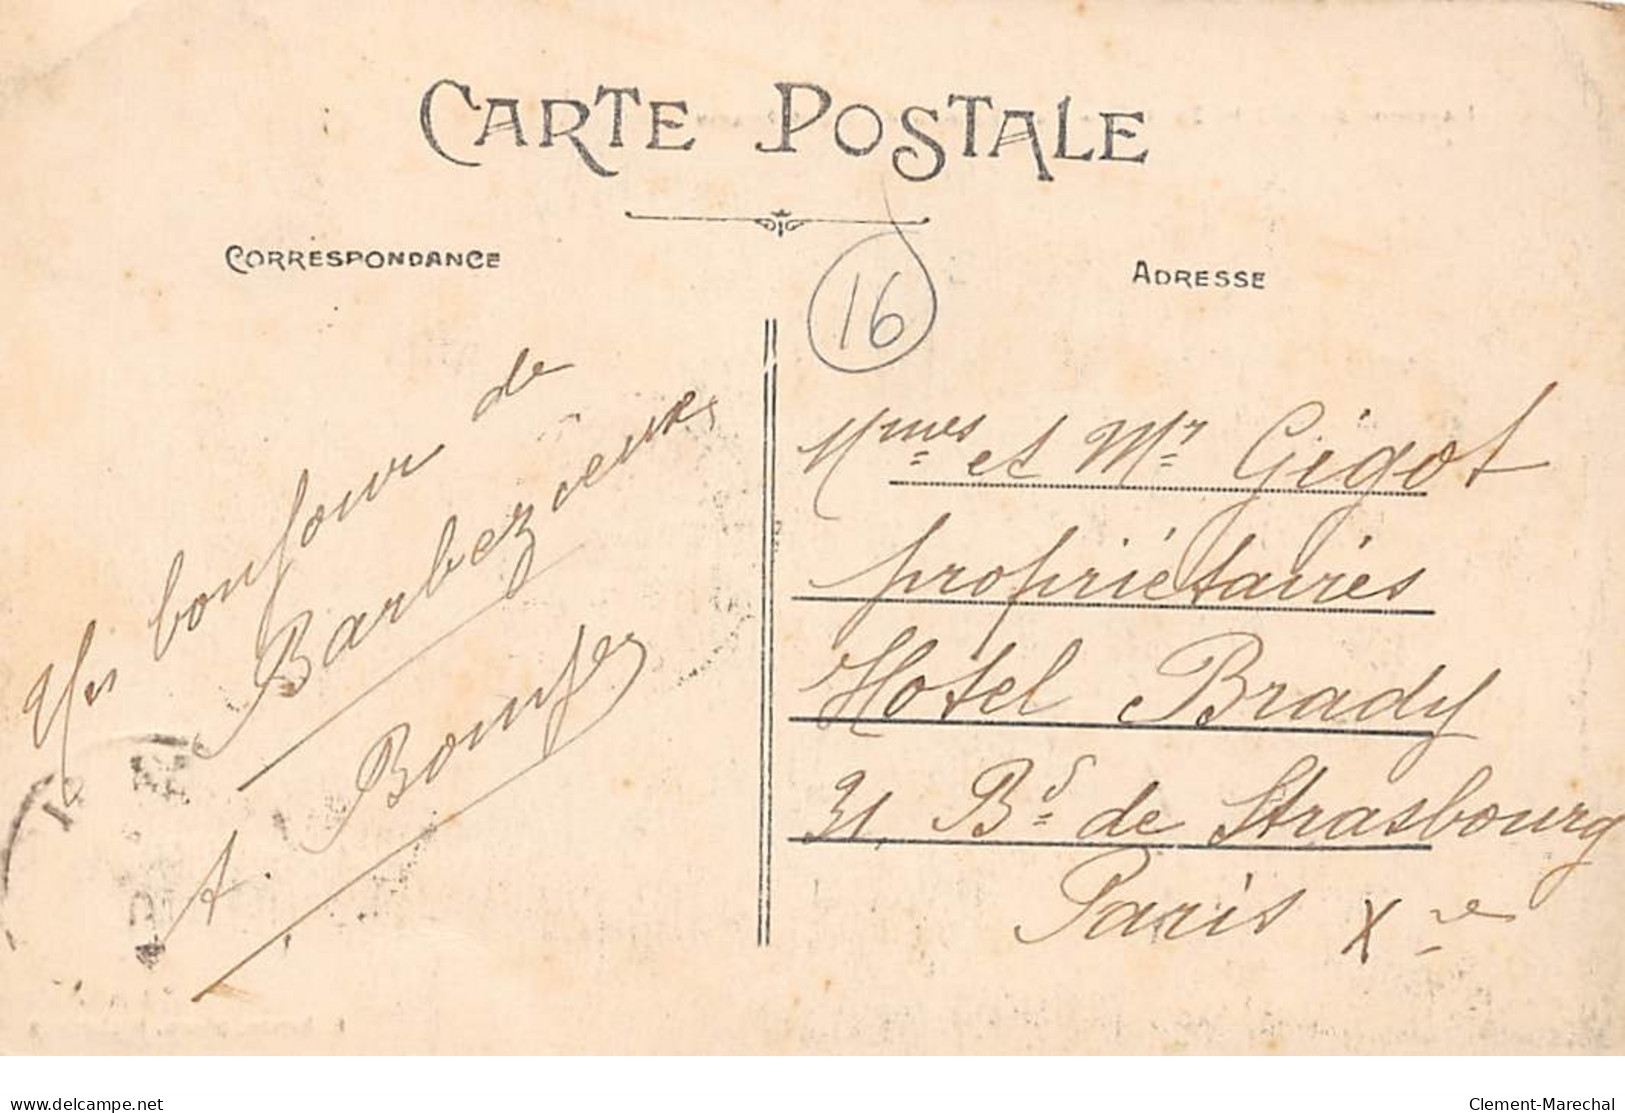 CARTE POSTALE
CORRESPONDANCE
ADRESSE
16
Un bonjour de
Barbezieux
A.
Mmes et Mr Gigot
propriétaires
Hotel Brady
31, Bd de Strasbourg
Paris Xe
delcampe.net
Clement-Marechal